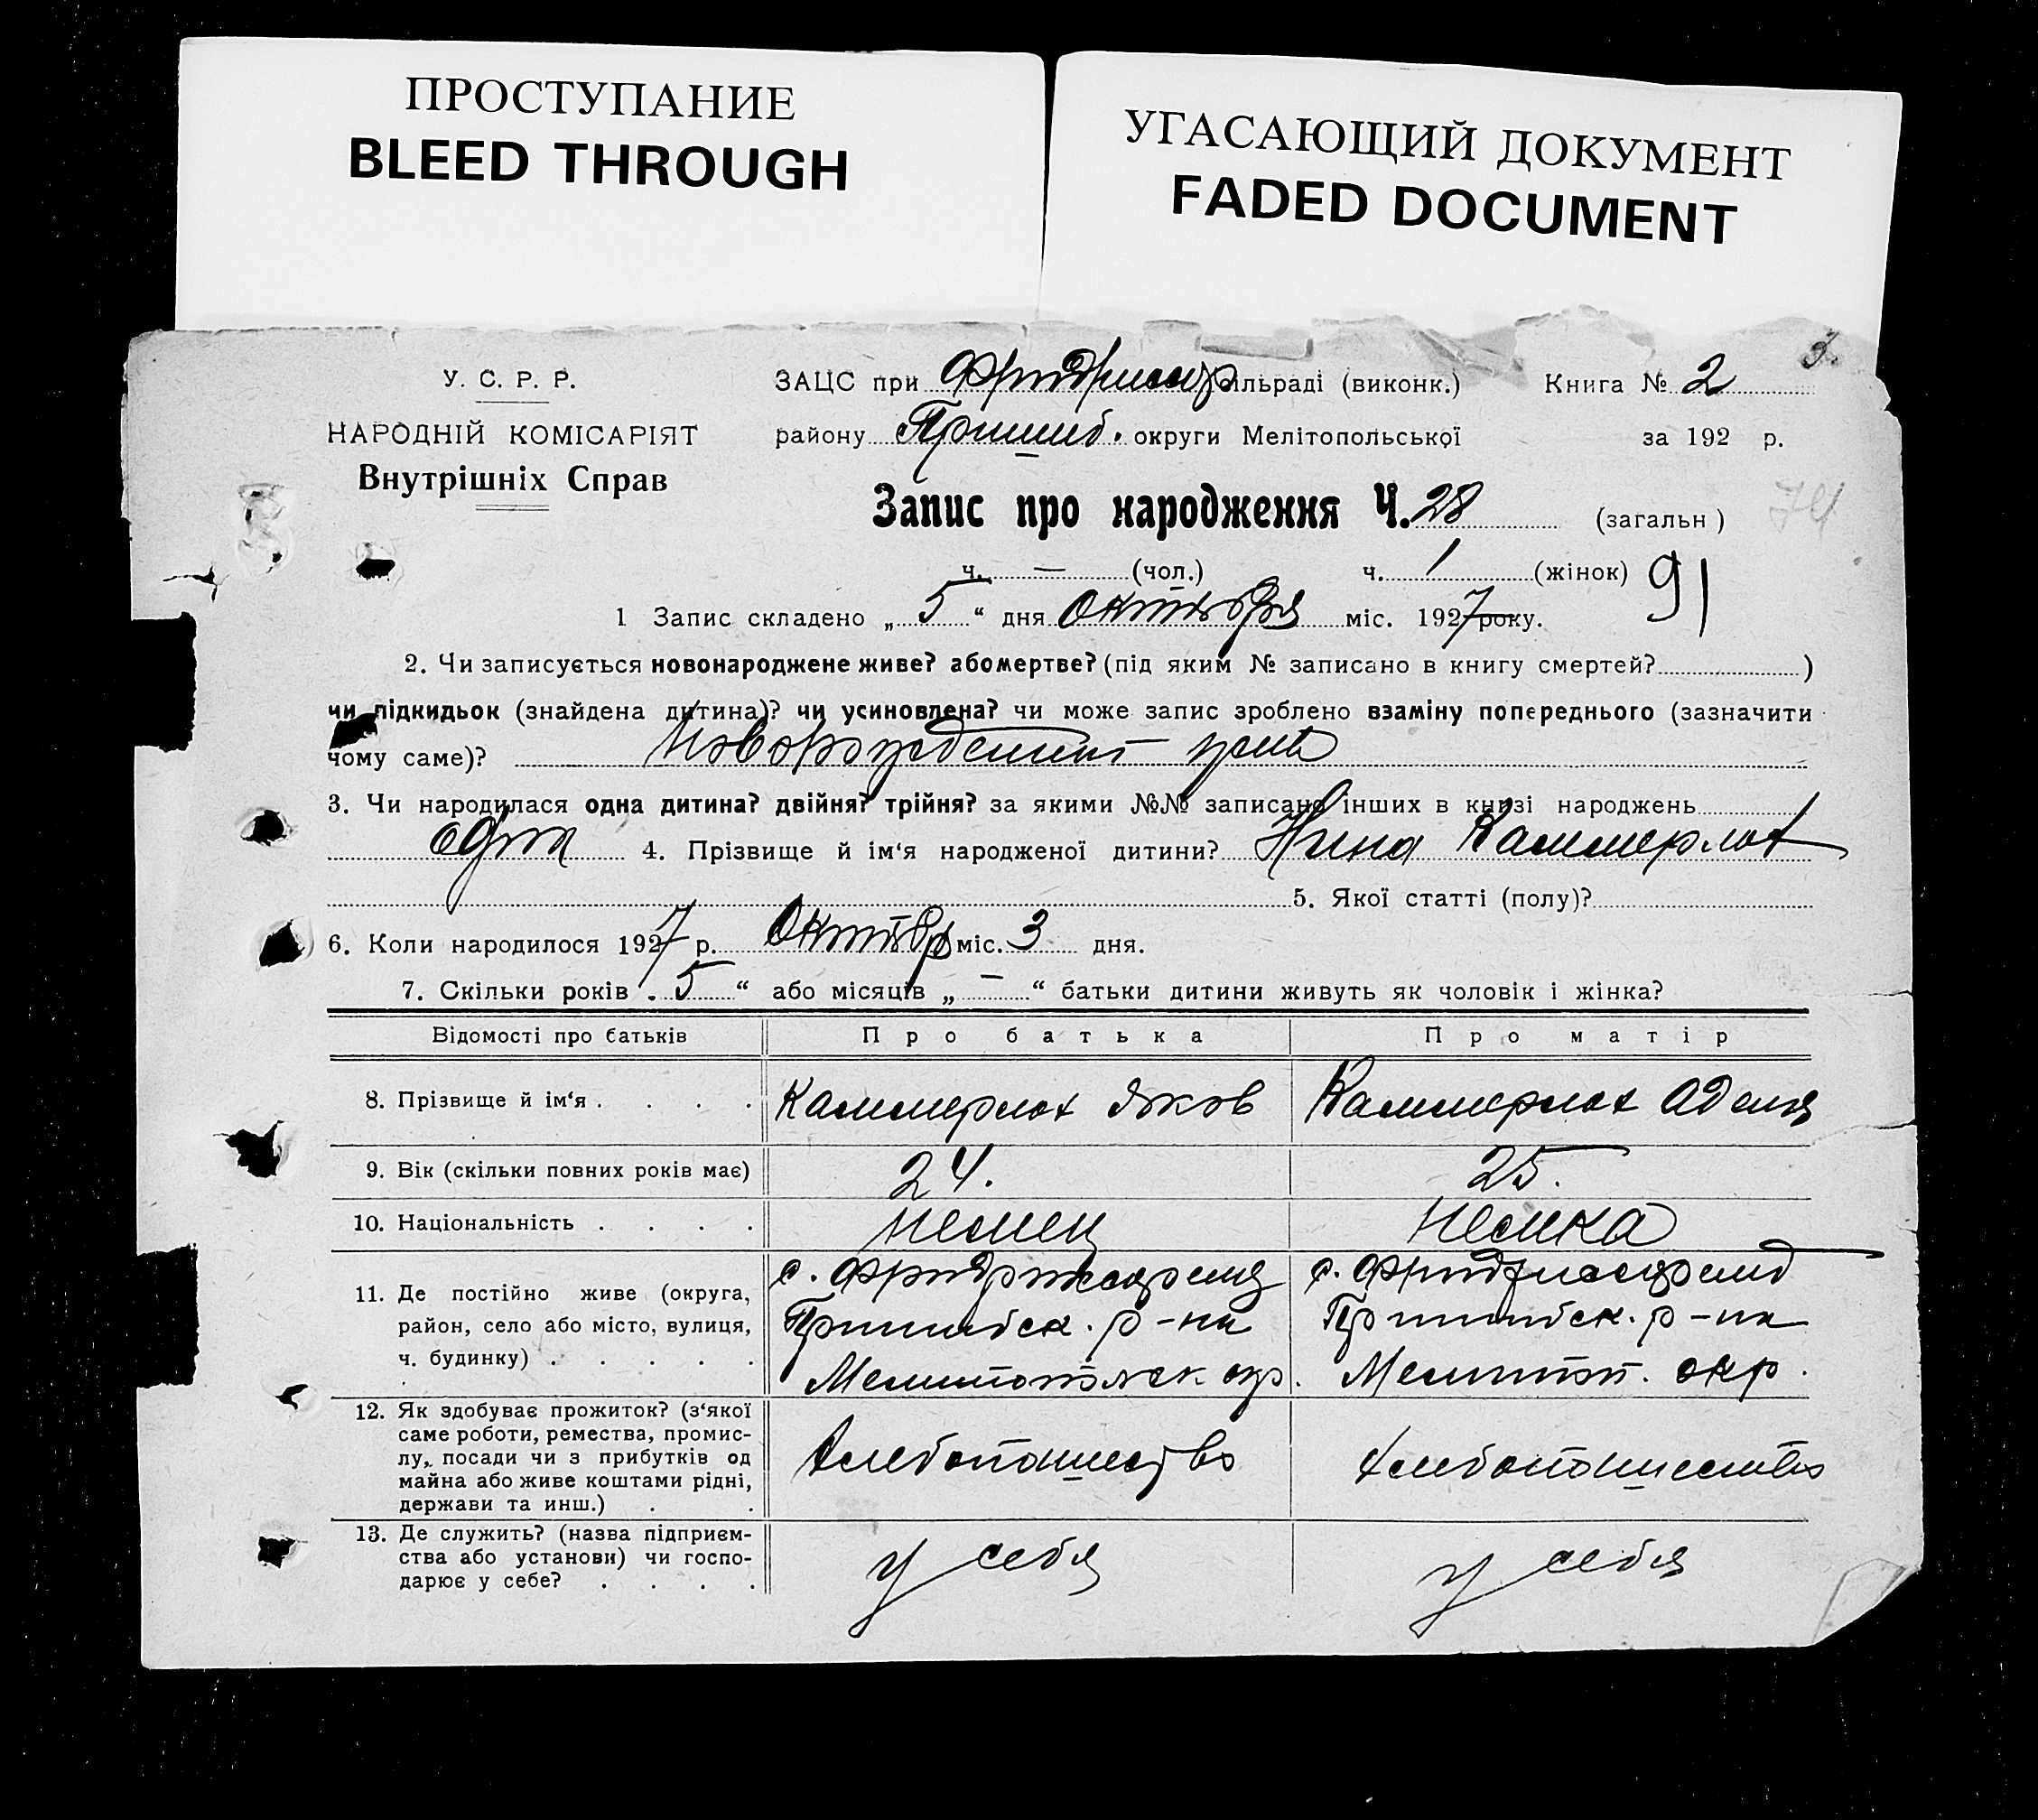 ПРОСТУПАНИЕ
BLEED THROUGH
УГАСАЮЩИЙ ДОКУМЕНТ
FADED DOCUMENT
3.
У. С. Р. Р.
НАРОДНІЙ КОМІСАРІЯТ
Внутрішніх Справ
ЗАЦС при сільраді (виконк.) Книга № 2
району Пришиб. округи Мелітопольської за 192 р.
Запис про народження Ч. 28 (загальн)
74
ч. — (чол.) ч. 1 (жінок) 91
1 Запис складено „ 5 “ дня октября міс. 1927 року.
2. Чи записується новонароджене живе? або мертве? (під яким № записано в книгу смертей? )
чи підкидьок (знайдена дитина)? чи усиновлена? чи може запис зроблено взаміну попереднього (зазначити
чому саме)?
3. Чи народилася одна дитина? двійня? трійня? за якими №№ записано інших в книзі народжень
4. Прізвище й ім‘я народженої дитини? Нина Каммерлох
5. Якої статті (полу)?
6. Коли народилося 1927 р. Октября міс. 3 дня.
7. Скільки років „ 5 “ або місяців „ — “ батьки дитини живуть як чоловік і жінка?
Відомості про батьків Про батька Про матір
8. Прізвище й ім‘я . . . . Каммерлох Яков Каммерлох Аделя
9. Вік (скільки повних років має) 24. 25.
10. Національність . . . . немец немка
11. Де постійно живе (округа,
район, село або місто, вулиця,
ч. будинку) . . . . .
с. Фридрихсфельд
Пришибск. р-на
Мелитопольск окр.
с. Фридрихсфельд
Пришибск. р-на
Мелитоп. окр.
12. Як здобуває прожиток? (з‘якої
саме роботи, ремества, промис-
лу, посади чи з прибутків од
майна або живе коштами рідні,
держави та инш.) . .
Хлебопашество
Хлебопашество
13. Де служить? (назва підприєм-
ства або установи) чи госпо-
дарює у себе? . . . .
у себя
у себя